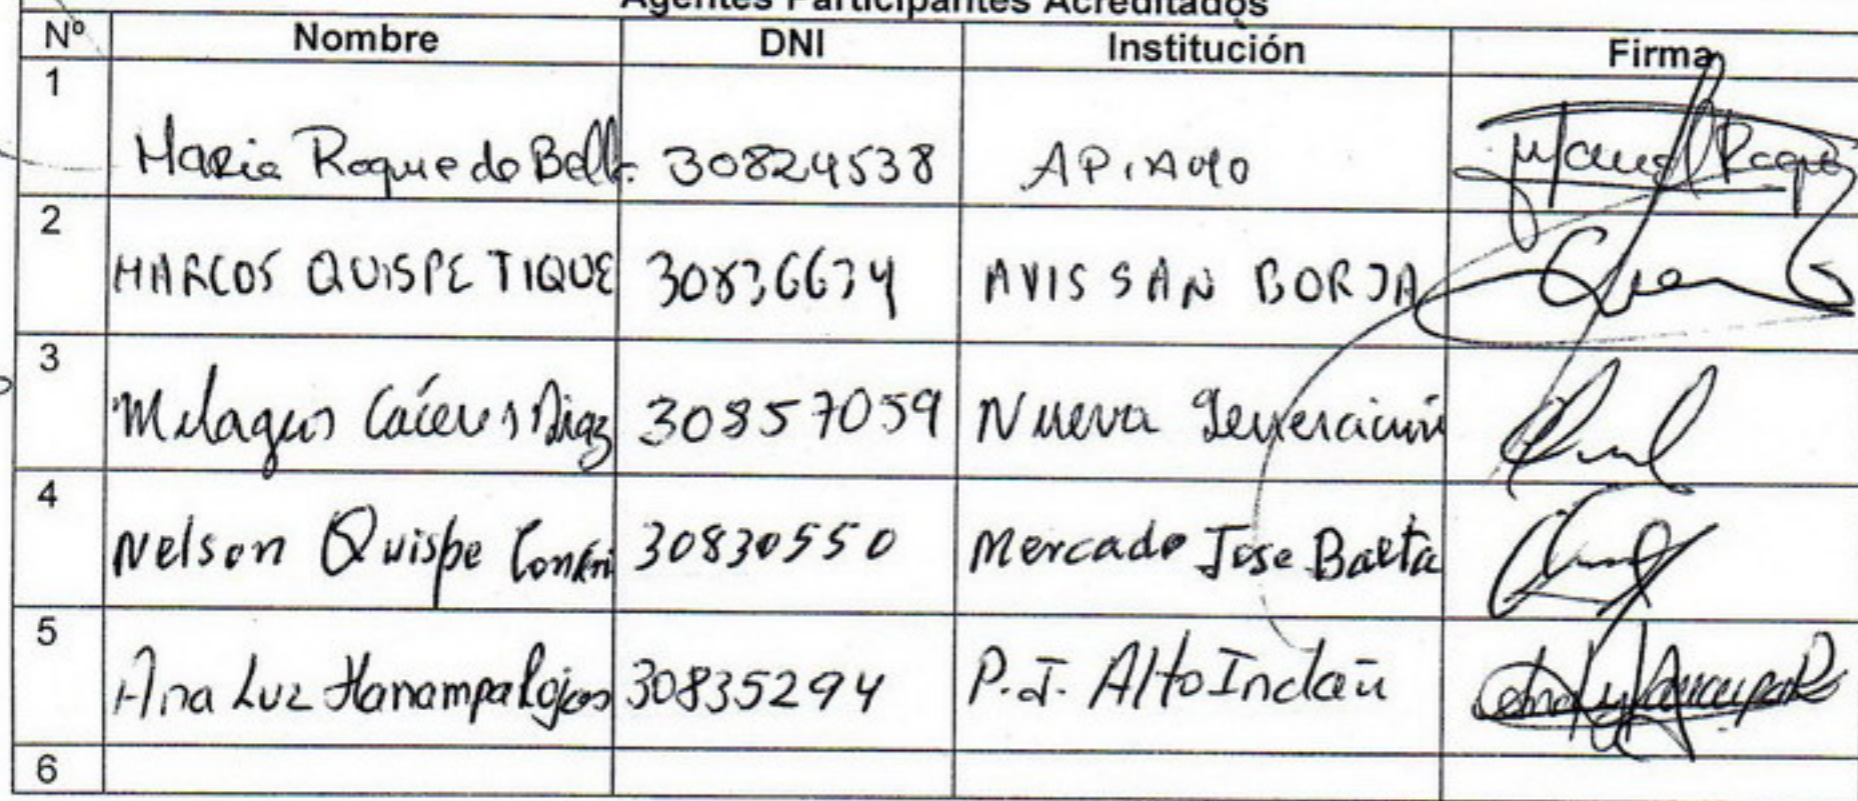 Agentes Participantes Acreditados
Nº Nombre DNI Institución Firma
1 Maria Roque de Bell. 30824538
2 MARCOS QUISPE TIQUE 30836634 AVIS SAN BORJA
3 Milagros Cáceres Diaz 30857059 Nueva Generación
4 Nelson Quispe 30830550 Mercado Jose Balta
5 Ana Luz Hanampa Rojas 30835294 P.J. Alto Inclan
6